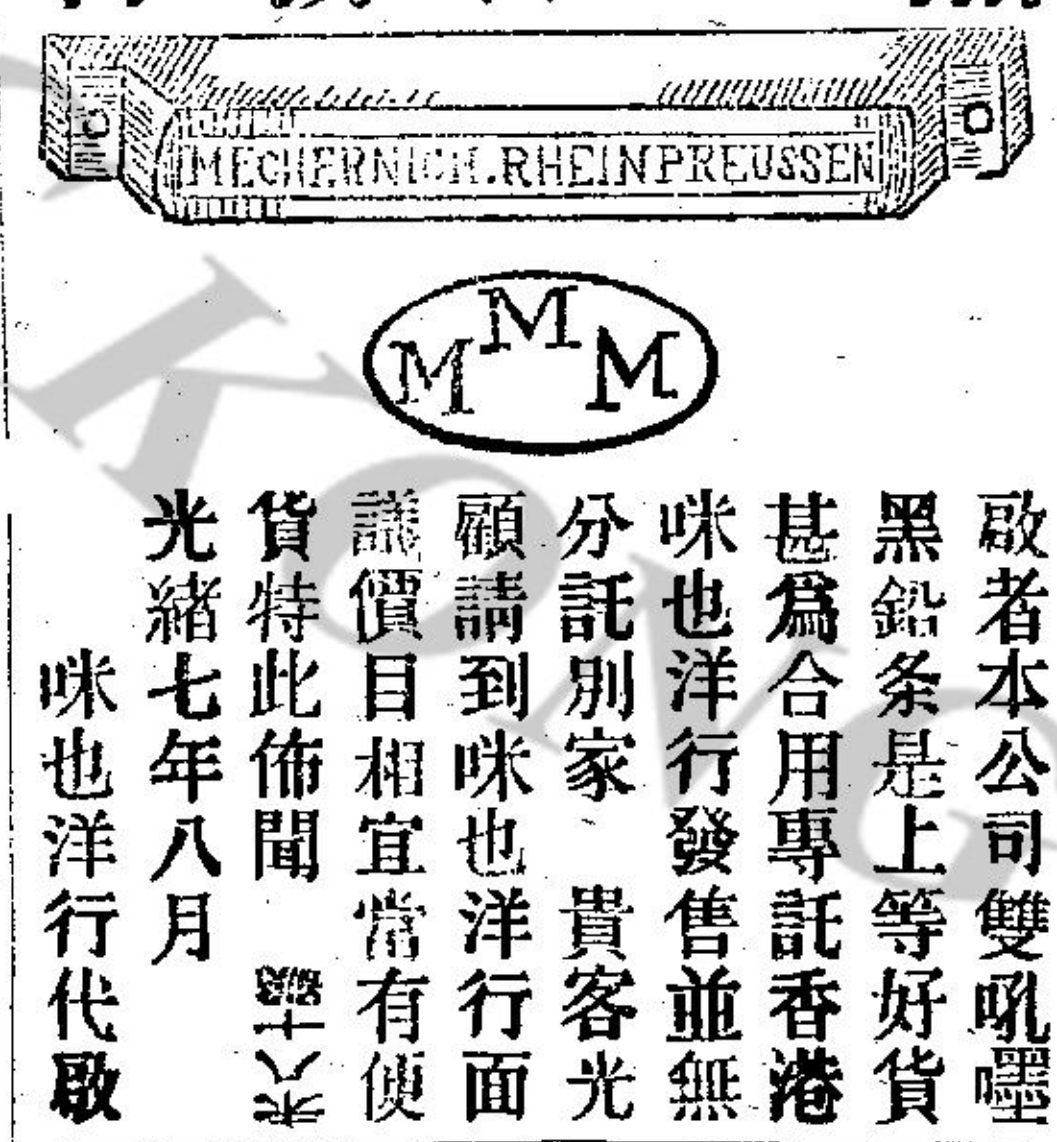 MECHERNICH.RHEINPREUSSEN
M M M
啟者本公司雙吼嚜
黑鉛条是上等好貨
甚爲合用專託香港
咪也洋行發售並無
分託別家 貴客光
顧請到咪也洋行面
議價目相宜常有便
貨特此佈聞
光緒七年八月
咪也洋行代啟
KONG